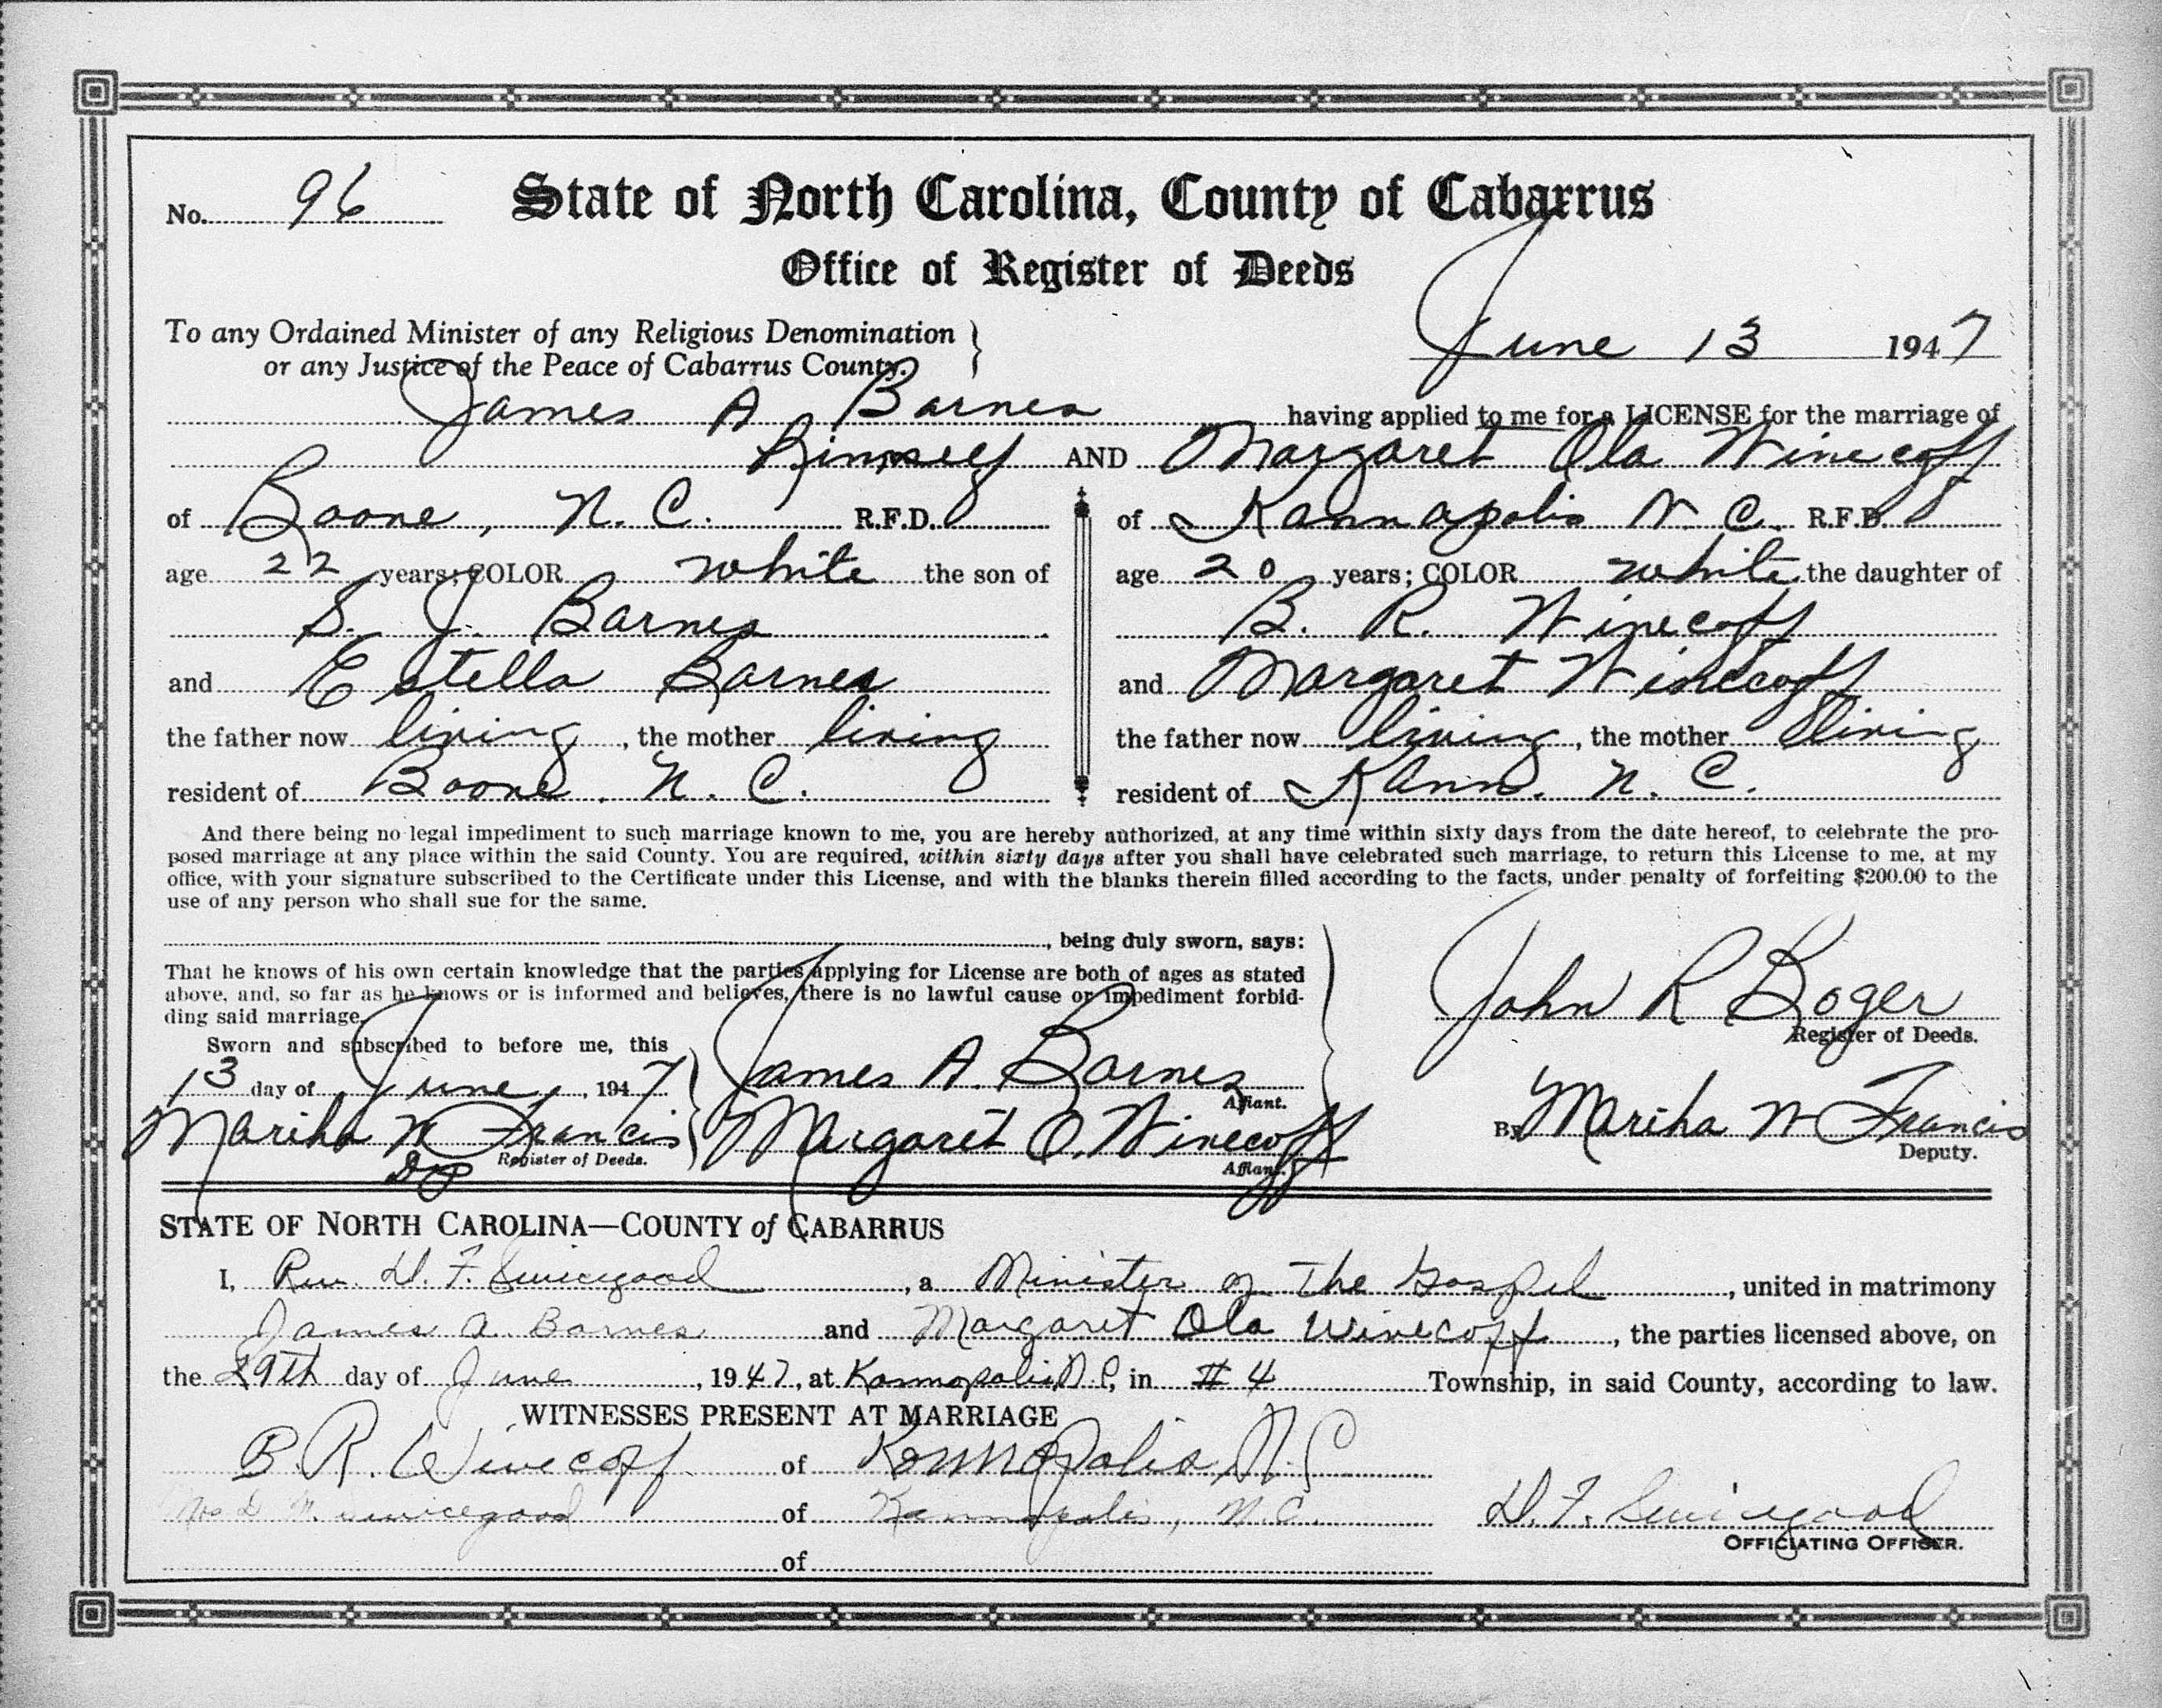 No. 96 State of North Carolina, County of Cabarrus
Office of Register of Deeds
To any Ordained Minister of any Religious Denomination
or any Justice of the Peace of Cabarrus County.
June 13 1947
James A Barnes having applied to me for a LICENSE for the marriage of
himself AND Margaret Ola Winecoff
of Boone, N. C. R.F.D. of Kannapolis N. C. R.F.D.
age 22 years; COLOR white the son of age 20 years; COLOR white the daughter of
S. J. Barnes B. R. Winecoff
and Estella Barnes and Margaret Winecoff
the father now living, the mother living the father now living, the mother living
resident of Boone, N. C. resident of Kann. N. C.
And there being no legal impediment to such marriage known to me, you are hereby authorized, at any time within sixty days from the date hereof, to celebrate the pro-
posed marriage at any place within the said County. You are required, within sixty days after you shall have celebrated such marriage, to return this License to me, at my
office, with your signature subscribed to the Certificate under this License, and with the blanks therein filled according to the facts, under penalty of forfeiting $200.00 to the
use of any person who shall sue for the same.
, being duly sworn, says:
That he knows of his own certain knowledge that the parties applying for License are both of ages as stated
above, and, so far as he knows or is informed and believes, there is no lawful cause or impediment forbid-
ding said marriage.
John R Boger
Register of Deeds.
Sworn and subscribed to before me, this
13 day of June, 1947 James A. Barnes
Affiant.
Martha W Francis Margaret O. Winecoff By Martha W Francis
Dep Register of Deeds. Affiant. Deputy.
STATE OF NORTH CAROLINA—COUNTY of CABARRUS
I, Rev. D. F. Swicegood, a Minister of The Gospel, united in matrimony
James A. Barnes and Margaret Ola Winecoff, the parties licensed above, on
the 29th day of June, 1947, at Kannapolis N.C, in # 4 Township, in said County, according to law.
WITNESSES PRESENT AT MARRIAGE
B. R. Winecoff of Kannapolis, N.C
Mrs D. Swicegood of Kannapolis, N.C. D. F. Swicegood
OFFICIATING OFFICER.
of